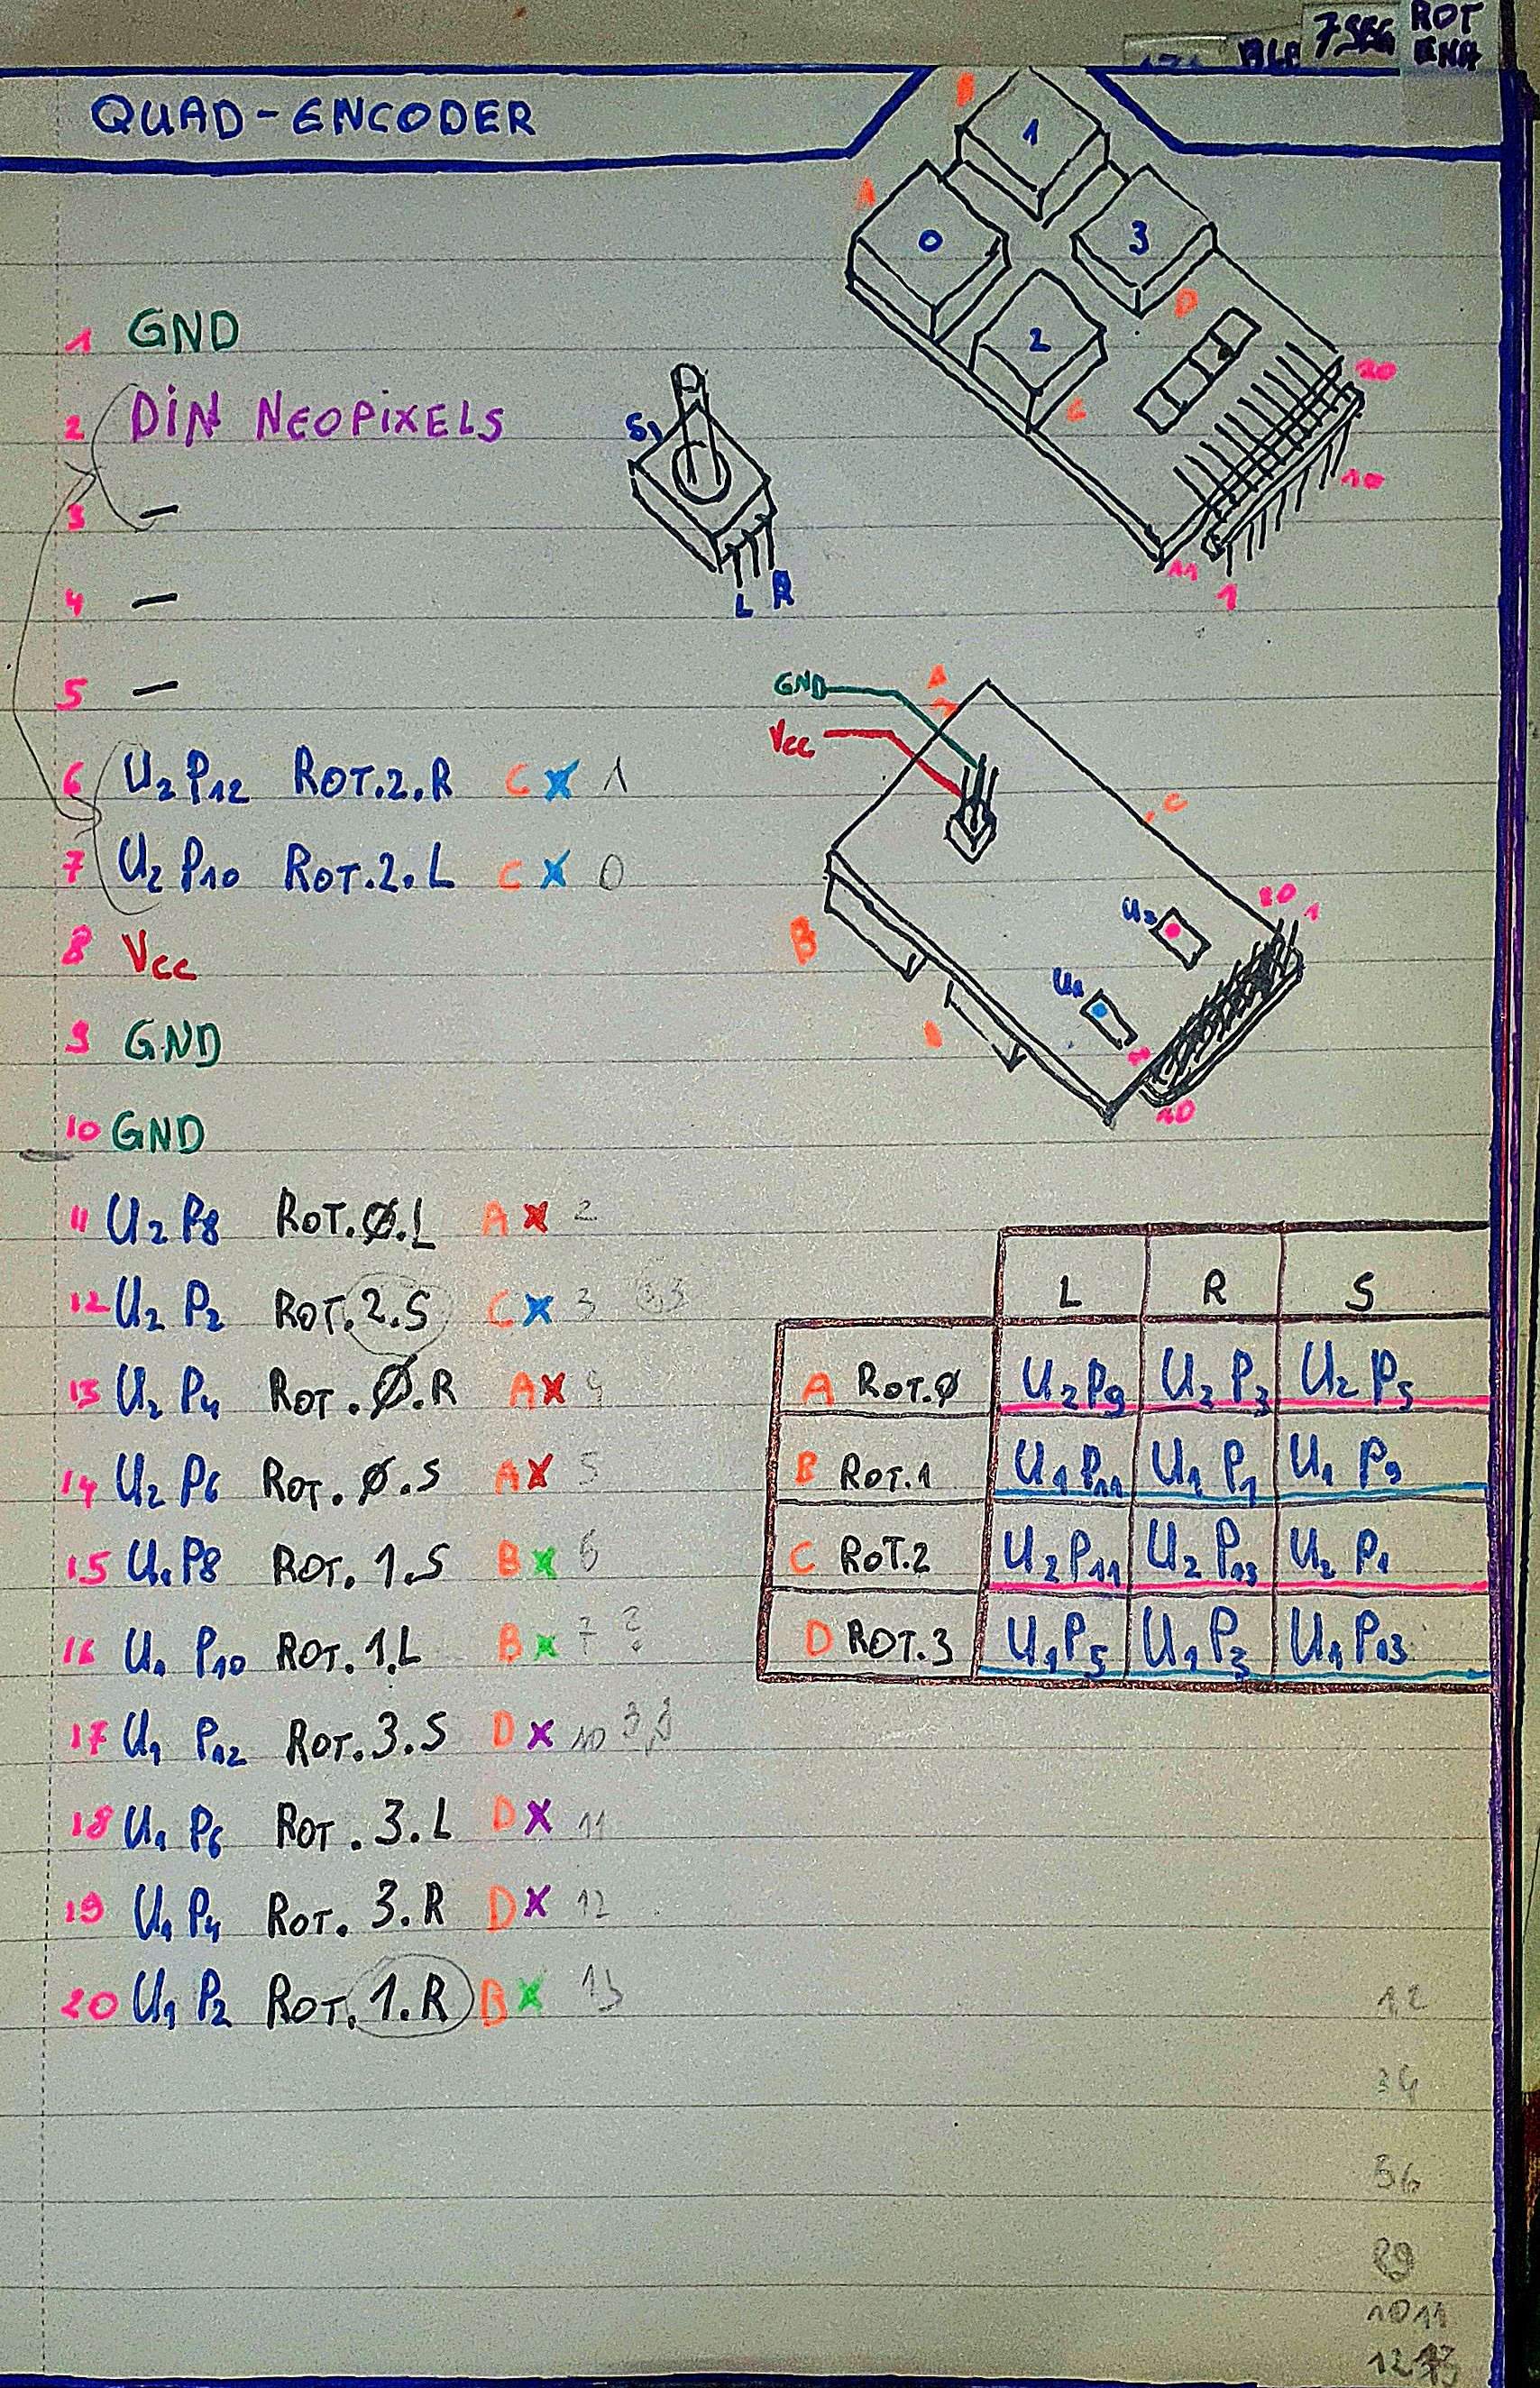 7.SEG ROT
ENA
QUAD-ENCODER
B
1
A
0
3
D
2
C
20
10
11
1
1 GND
2 DIN NEOPIXELS
3 —
4 —
5 —
6 U2 P12 ROT.2.R C X 1
7 U2 P10 ROT.2.L C X 0
8 Vcc
9 GND
10 GND
11 U2 P8 ROT.Ø.L A X 2
12 U2 P2 ROT.2.S C X 3
13 U2 P4 ROT.Ø.R A X 4
14 U2 P6 ROT.Ø.S A X 5
15 U1 P8 ROT.1.S B X 6
16 U1 P10 ROT.1.L B X 7 ?
17 U1 P12 ROT.3.S D X 10 3,3
18 U1 P6 ROT.3.L D X 11
19 U1 P4 ROT.3.R D X 12
20 U1 P2 ROT.1.R B X 13
S1
L R
GND A
Vcc
C
B
U2
20 1
U1
10
L R S
A ROT.Ø U2P9 U2 P3 U2 P5
B ROT.1 U1P11 U1 P1 U1 P9
C ROT.2 U2P11 U2 P13 U2 P1
D ROT.3 U1P5 U1 P3 U1 P13
12
34
56
89
10 11
12 13